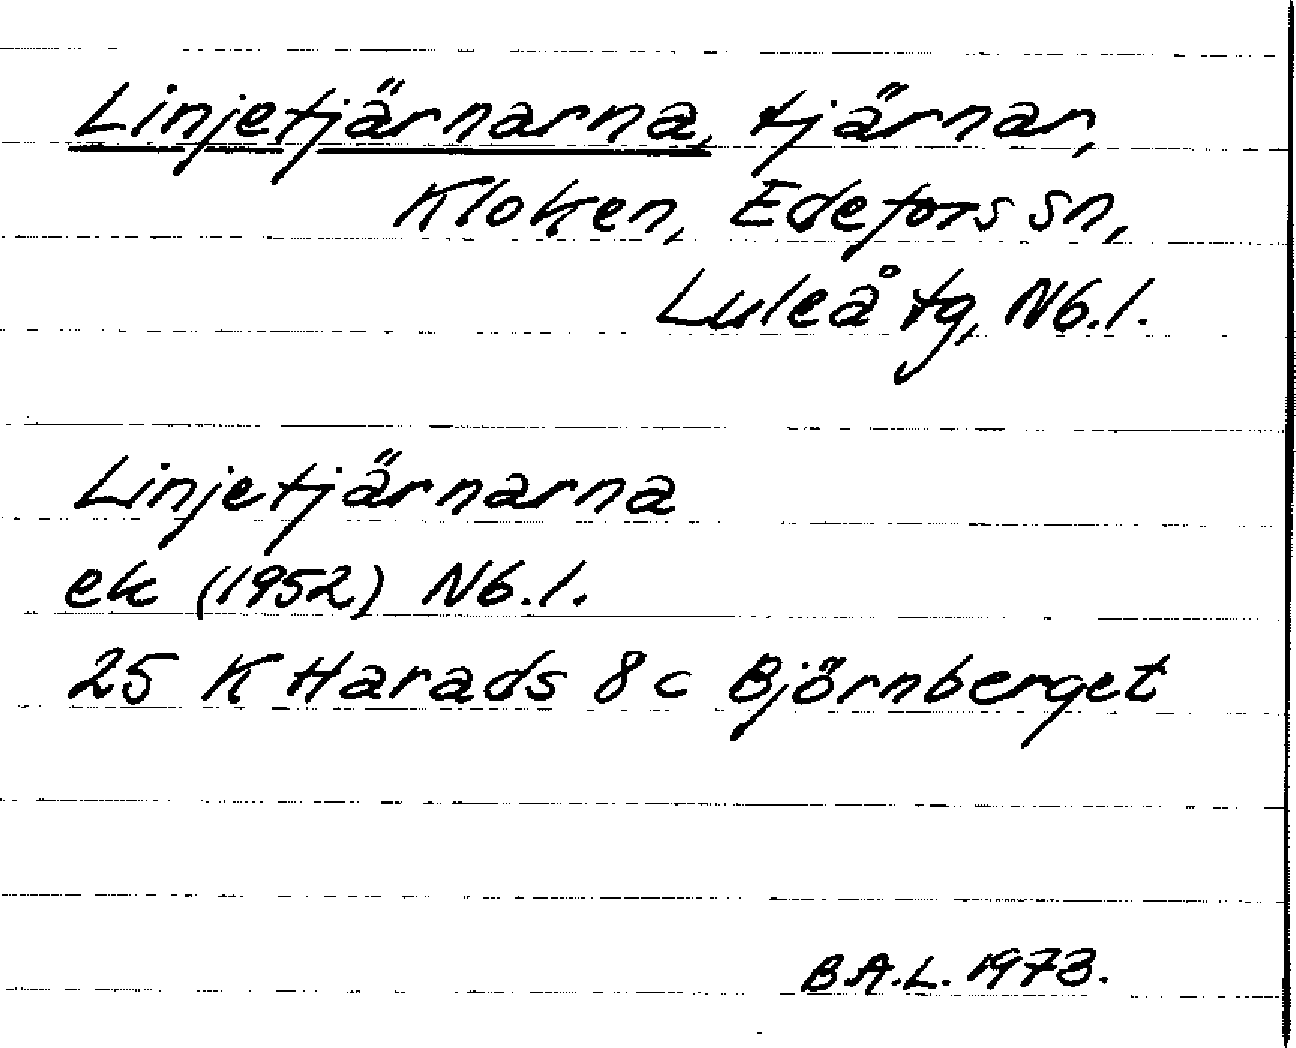 Linjetjärnarna, tjärnar,
Kloken, Edefors sn,
Luleå tg, Nb.l.
Linjetjärnarna
ek (1952) Nb.l.
25 K Harads 8c Björnberget
B.A.L. 1973.